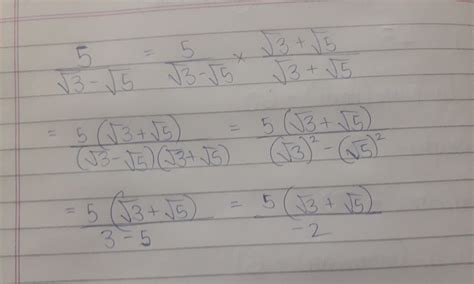 5/(√3 − √5) = 5/(√3 − √5) × (√3 + √5)/(√3 + √5)
= 5(√3 + √5)/((√3 − √5)(√3 + √5)) = 5(√3 + √5)/((√3)² − (√5)²)
= 5(√3 + √5)/(3 − 5) = 5(√3 + √5)/(−2)